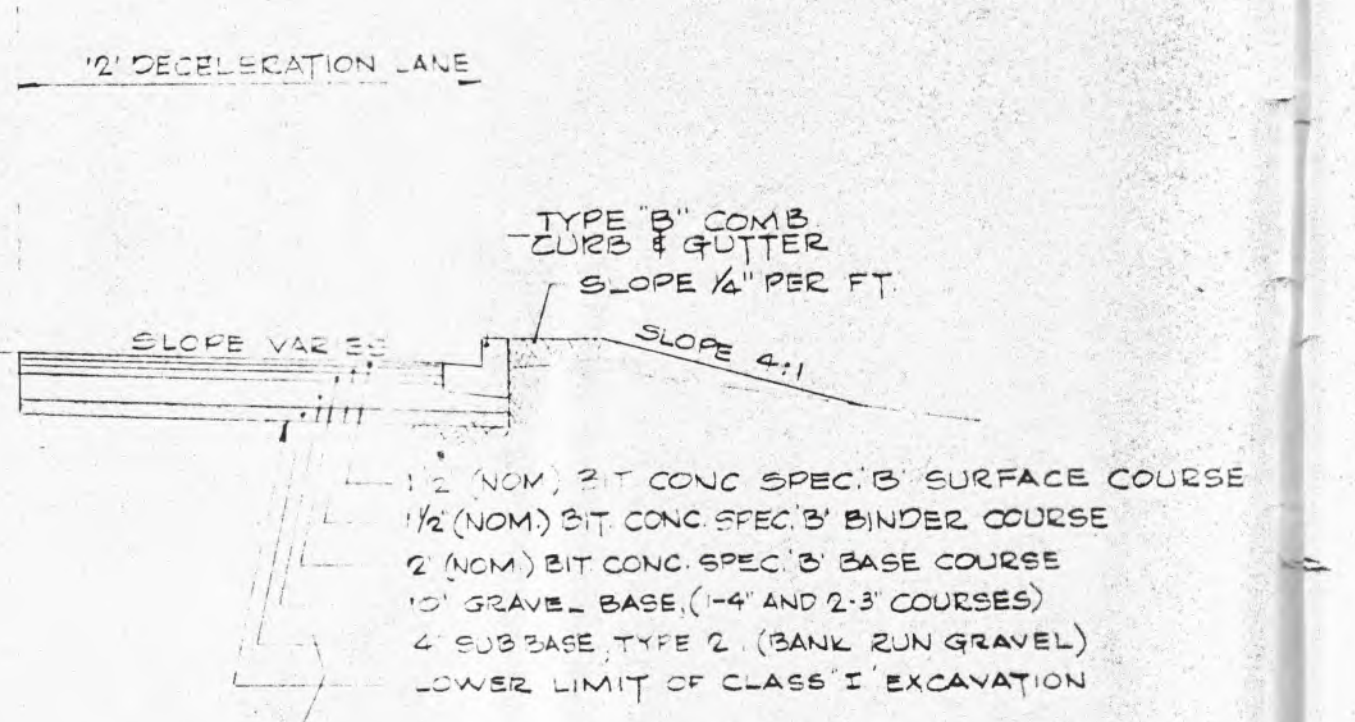 12' DECELERATION LANE
TYPE "B" COMB.
CURB & GUTTER
SLOPE 1/4" PER FT.
SLOPE VARIES
SLOPE 4:1
1 1/2" (NOM) BIT CONC SPEC. 'B' SURFACE COURSE
1 1/2" (NOM.) BIT. CONC. SPEC. 'B' BINDER COURSE
2" (NOM.) BIT CONC. SPEC. 'B' BASE COURSE
10" GRAVEL BASE, (1-4" AND 2-3" COURSES)
4" SUBBASE, TYPE 2, (BANK RUN GRAVEL)
LOWER LIMIT OF CLASS "I" EXCAVATION